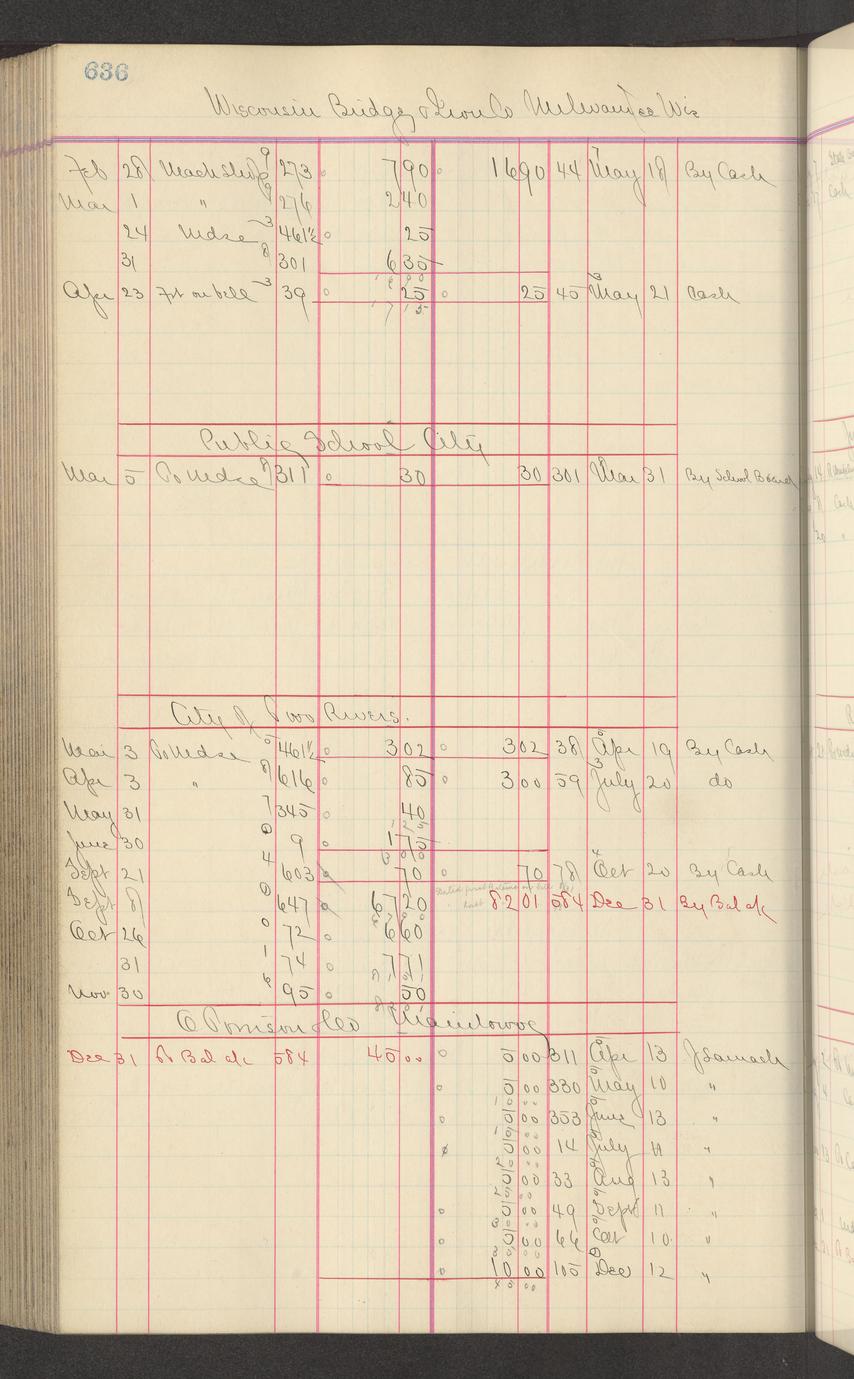 636
Wisconsin Bridge & Iron Co Milwaukee Wis
Feb 28 Mach Shop 9 273 7 90 16 90 44 May 18 By Cash
Mar 1 " 9 276 2 40
24 Mdse 3 461½ 25
31 8 301 6 35
Apr 23 Frt on bell 3 39 25 25 45 May 21 Cash
Public School City
Mar 5 To Mdse 7 311 30 30 301 Mar 31 By School Board
City of Two Rivers.
Mar 3 To Mdse 461½ 3 02 3 02 38 Apr 19 By Cash
Apr 3 " 8 616 85 3 00 59 July 20 do
May 31 7 345 40
June 30 0 9 1 75
Sept 21 4 603 70 70 78 Oct 20 By Cash
Sept 8 0 647 67 20 82 01 584 Dec 31 By Bal a/c
Oct 26 0 72 6 60
31 1 74 7 71
Nov 30 6 95 50
Manitowoc
Dec 31 To Bal a/c 584 45 00 5 00 311 Apr 13
5 00 330 May 10 "
5 00 353 June 13 "
5 00 14 July 11 "
5 00 33 Aug 13 "
5 00 49 Sept 11 "
5 00 66 Oct 10 "
10 00 105 Dec 12 "